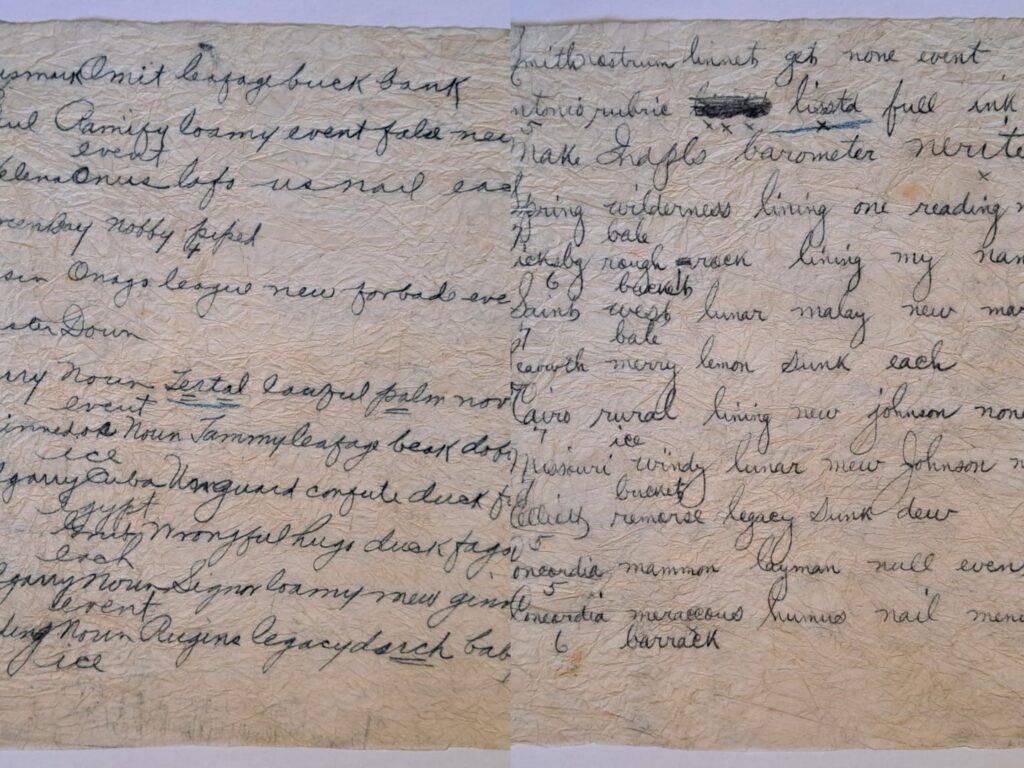 Bismark Omit leafage buck bank
Paul Ramify loamy event false new
event
Helena Onus lofo us nail each
Green Bay nobby piped
Onago league new forbade eve
Down
Noun Tertal lawful palm nov
event
Noun Jammy leafage beak dob
ice
Calgarry Cuba Unguard confute duck f
Egypt
Wrongful hugs duck fag
each
Calgarry Noun Signor loamy mew gin
event
Noun Rugins legacy dsrch bab
ice
Smith nostrum linnet get none event
Antonio rubric lisstd full ink
5
Make Indpls barometer nerite
Spring wilderness lining one reading
bale
rough rack lining my nam
6 bucket
Saint west lunar malay new mar
7 bale
Leavwth merry lemon sunk each
Cairo rural lining new johnson none
7 ice
Missouri windy lunar mew Johnson
bucket
Celliott remorse legacy dunk dew
5
Concordia mammon layman null even
5
Concordia meraccous humus nail men
6 barrack